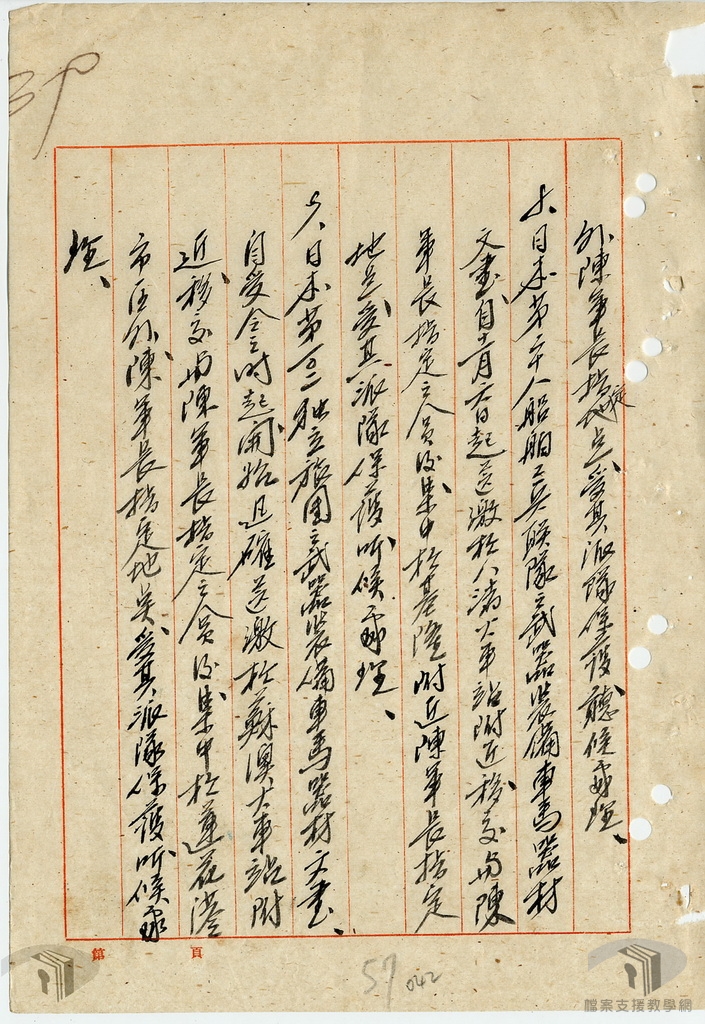 外陳軍長指定地点、受其派隊保護聽候處理、
七、日本第二十八船舶工兵联隊之武器裝備車馬器材
文書、自十一月六日起送繳於八堵火車站附近移交与陳
軍長指定之人員后集中於基隆附近陳軍長指定
地点受其派隊保護听候處理、
八、日本第一〇二独立旅团之武器裝備車馬器材文書、
自受令之时起開始迅確送繳於蘇澳火車站附
近、移交与陳軍長指定之人員后集中於蓮花港
市区外陳軍長指定地点、受其派隊保護听候處
理、
第 頁
57 042
檔案支援教學網